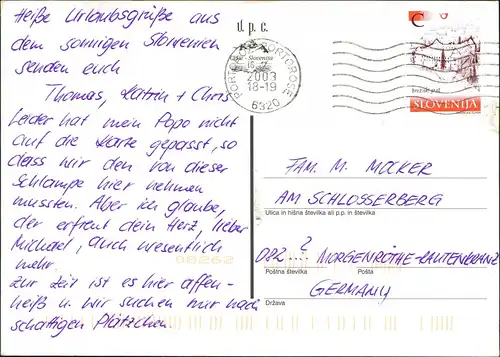 Heiße Urlaubsgrüße aus
dem sonnigen Slowenien
senden euch
Thomas, Katrin + Chris
Leider hat mein Popo nicht
auf die Karte gepasst, so
dass wir den von dieser
Schlampe hier nehmen
mussten. Aber ich glaube,
der erfreut dein Herz, lieber
Michael, auch wesentlich
mehr.
Zur Zeit ist es hier affen-
heiß u. wir suchen nur nach
schattigen Plätzchen.
08262
d. p. c.
PORTOROSE
Slovenija
2003
18-19
6320
C
SLOVENIJA
FAM. M. MOCKER
AM SCHLOSSERBERG
Ulica in hišna številka ali p.p. in številka
DPZ ...? MORGENRÖTHE-RAUTENKRANZ
Poštna številka Pošta
GERMANY
Država